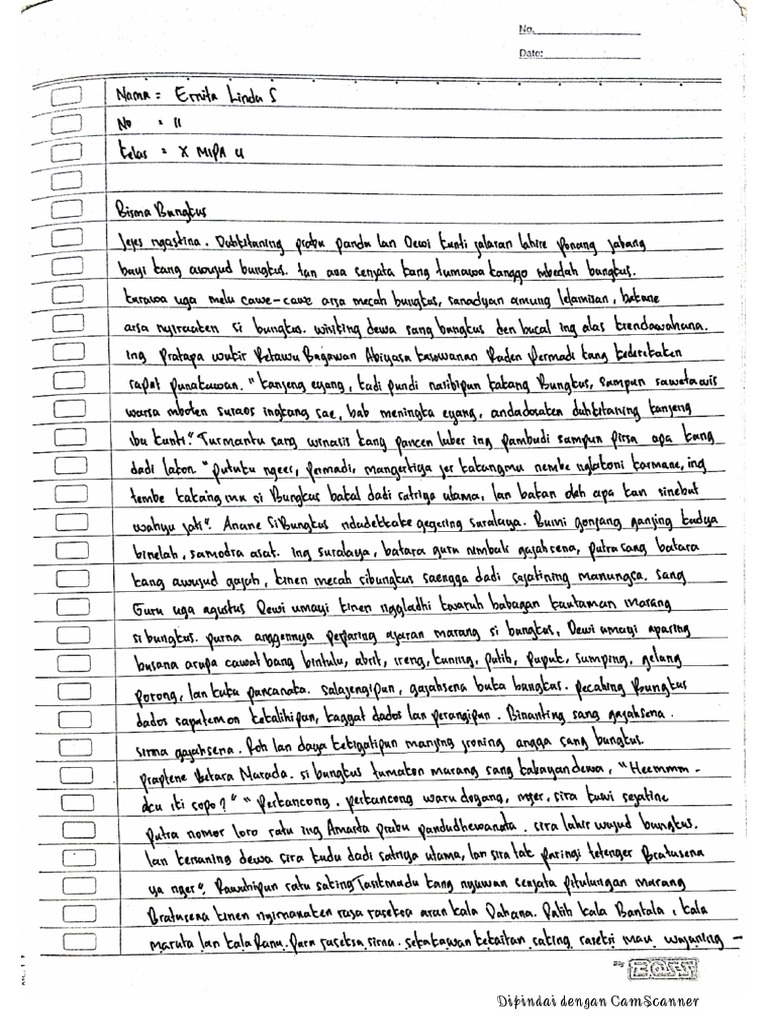 No.
Date:
Nama = Ernita Linda S
No = 11
Kelas = X MIPA 4
Bisma Bungkus
Jejer ngastina. Duhkitaning prabu pandu lan Dewi kunti jalaran lahire ponang jabang
bayi kang awujud bungkus. tan ana senjata kang tumawa kanggo mbedah bungkus.
kurawa uga melu cawe-cawe arsa mecah bungkus, sanadyan amung lelamisan, batane
arsa nyirnaaken si bungkus. winiking dewa sang bungkus den bucal ing alas krendawahana.
ing Pratapa wukir Retawu Bagawan Abiyasa kasowanan Raden Permadi kang kederekaken
rapat punakawan. "kanjeng eyang, kadi pundi nasibipun kakang Bungkus, sampun sawetawis
warsa mboten suraos ingkang sae, bab meningka eyang, andadosaken duhkitaning kanjeng
ibu kunti". Turmantu sang winasis kang pancen luber ing pambudi sampun pirsa apa kang
dadi lakon "putuku ngger, permadi, mangertiya yer kakangmu nembe nglakoni karmane, ing
tembe kakang mu si Bungkus bakal dadi satriya utama, lan bakan oleh apa kan sinebut
wahyu jati". Anane SiBungkus ndadekkake gegering suralaya. Bumi gonjang ganjing kadya
binelah, samodra asat. ing suralaya, batara guru nimbali gajahsena, putra sang batara
kang awujud gajah, kinen mecah sibungkus saengga dadi sejatining manungsa. sang
Guru uga agustus Dewi umayi kinen nggladhi kawruh babagan kautaman marang
si bungkus. purna anggennya peparing ajaran marang si bungkus, Dewi umayi aparing
busana arupa cawat bang bintulu, abrit, ireng, kuning, putih, pupuk, sumping, gelang
porong, lan kuku pancanaka. salajengipun, gajahsena buka bungkus. pecahing Bungkus
dados sapatemon kekalihipan, kaggat dados lan perangipun. Binanting sang gajahsena.
sirna gajahsena. Roh lan daya ketigatipun manjing jroning angga sang bungkus.
praptene Betara Narada. si bungkus tumakon marang sang kabayandewa, "Heemmm-
aku iki sopo?" "Perkancong. perkancong waru doyong, ngger, sira kuwi sejatine
putra nomor loro ratu ing Amarta prabu pandudhewanata. sira lahir wujud bungkus.
lan kersaning dewa sira kudu dadi satriya utama, lan sira tak paringi tetenger Bratasena
ya nger". Rawuhipun ratu saking Tasikmadu kang nyuwun senjata pitulungan marang
Bratasena kinen nyirnanaken rasa raseksa aran kala Dahana. Patih kala Bantala, kala
maruta lan kala Ranu. Para raseksa sirna. sekakawan kekaitan saking raseksi mau wujuning-
By
Dipindai dengan CamScanner